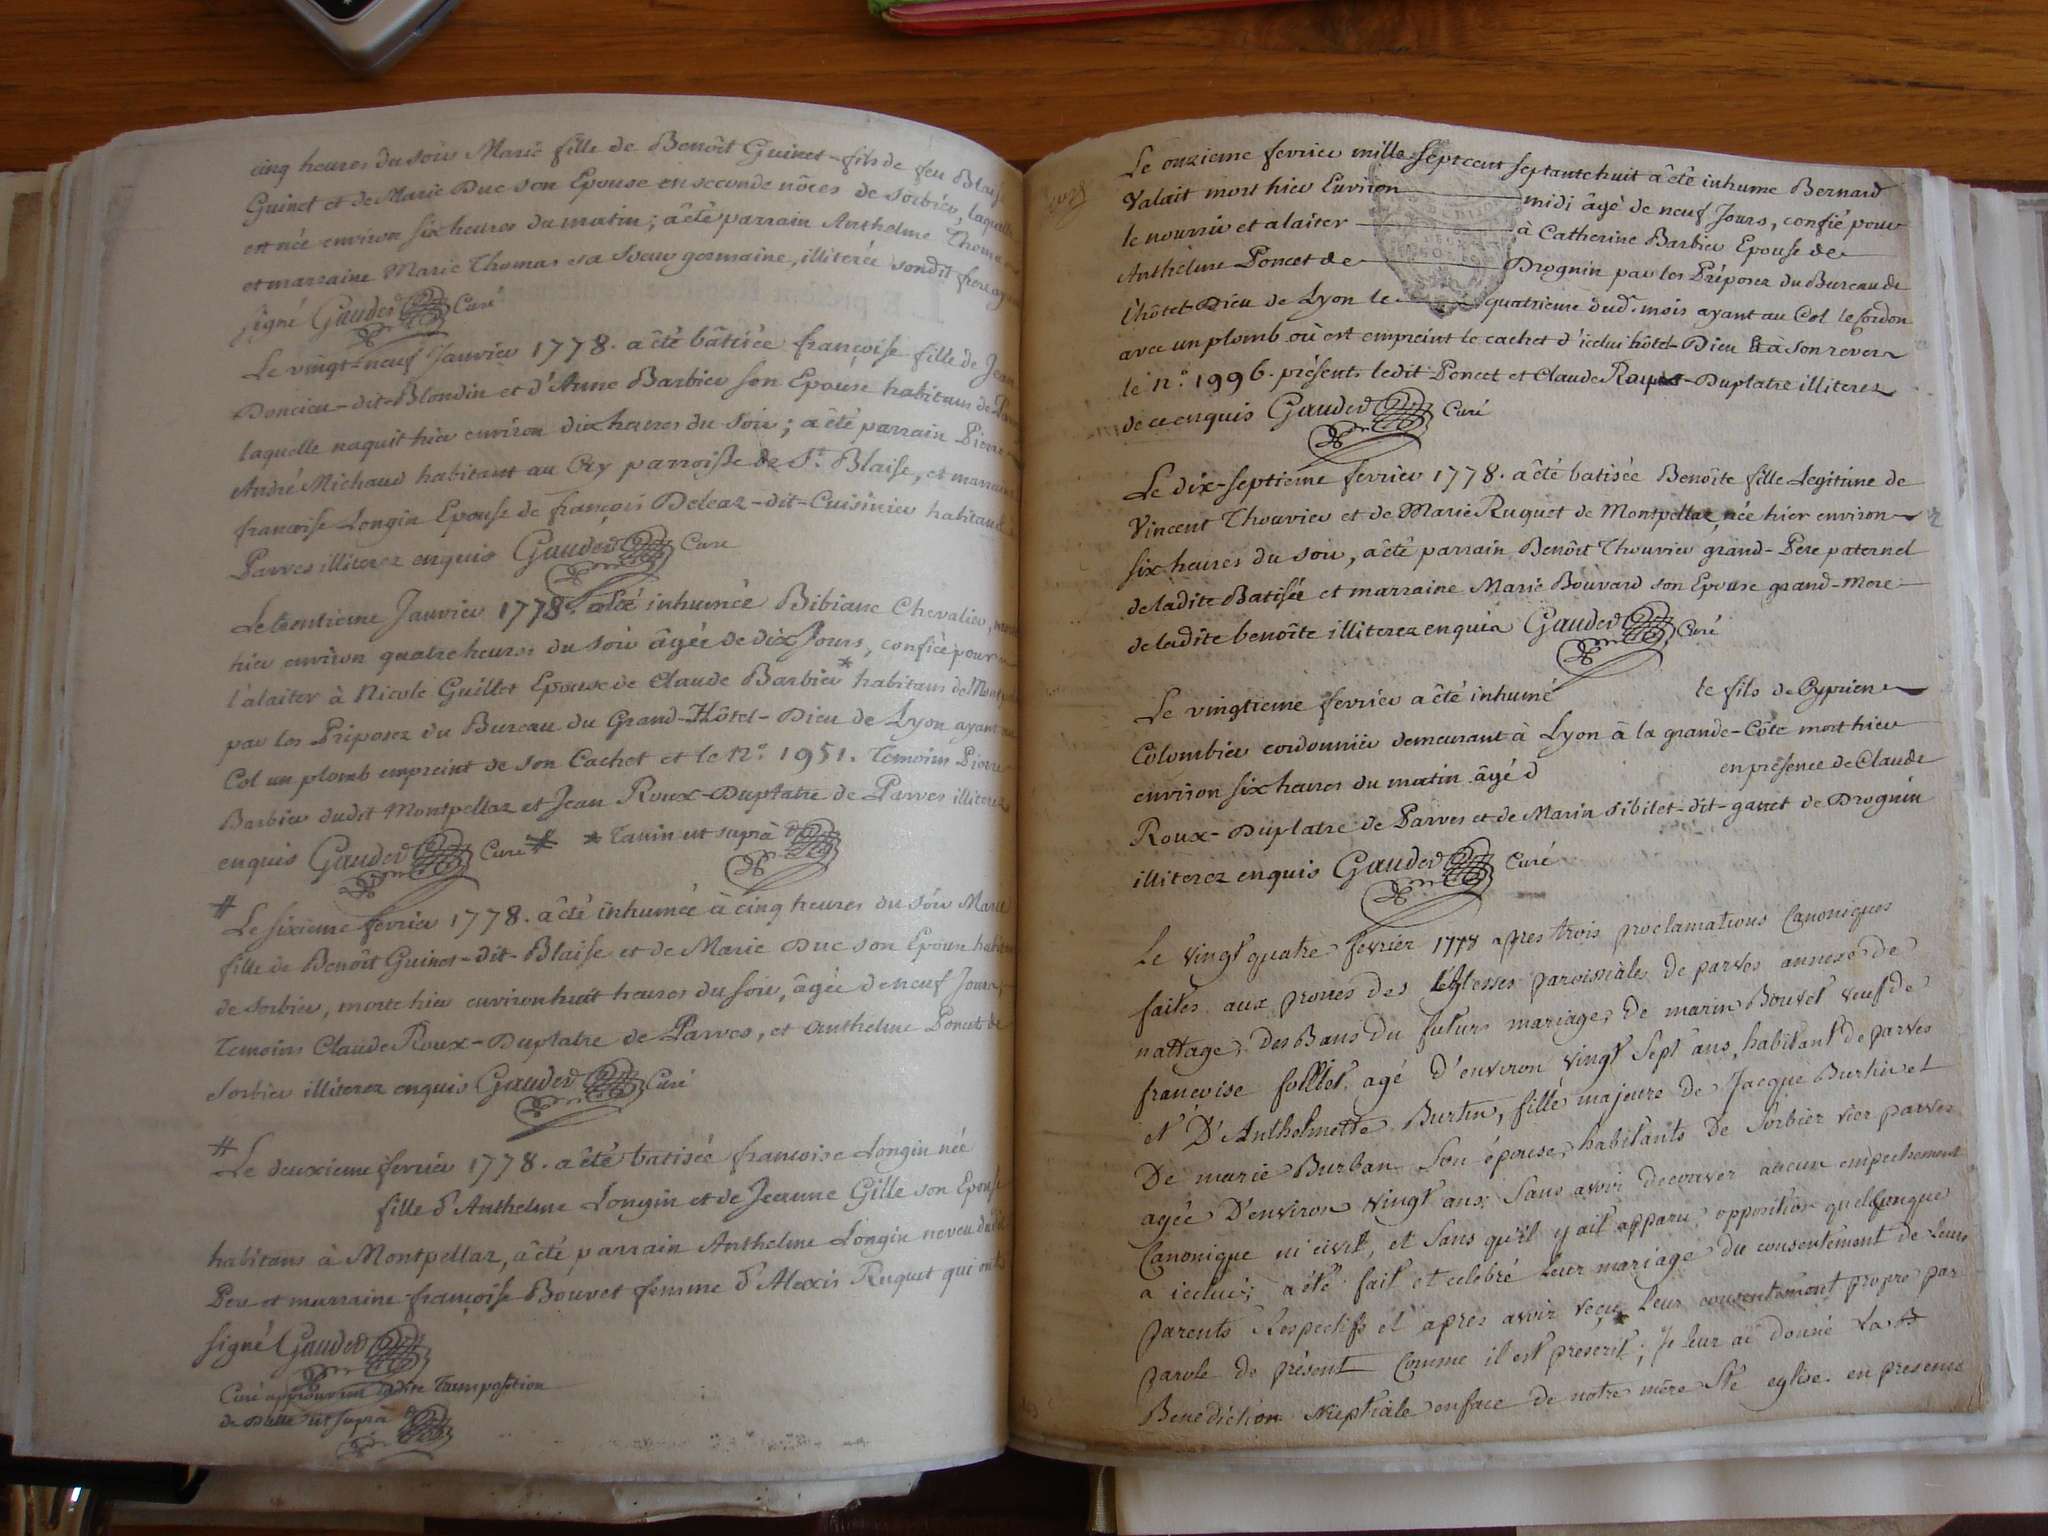 cinq heures du soir Marie fille de Benoît Guinet-fils de feu Blaise
Guinet et de Marie Duc son Epouse en seconde nôces de Sorbier, laquelle
est née environ six heures du matin; â êté parrain Anthelme Thomas
et marraine Marie Thomas sa Soeur germaine, illiterée sondit frere ayant
signé Gauder Curé
Le vingt-neuf Janvier 1778. a êté bâtisée françoise fille de Jean
Doncieu-dit-Blondin et d'Anne Barbier son Epouse habitans de Parves
laquelle naquit hier environ dix heures du soir; a êté parrain Pierre-
André Michaud habitant au Cry parroisse de St. Blaise, et marraine
francoise Longin Epouse de françois Deleaz-dit-Cuisinier habitans
Parves illiterez enquis Gauder Cure
Le trentieme Janvier 1778. a êté inhumée Bibiane Chevalier, morte
hier environ quatre heures du soir âgée de dix Jours, confiée pour
l'alaiter à Nicole Guillet Epouse de Claude Barbier * habitans de Montpellaz
par les Préposez du Bureau du Grand-Hôtel-Dieu de Lyon ayant au
Col un plomb empreint de son Cachet et le N.o 1951. Temoins Pierre
Barbier dudit Montpellaz et Jean Roux-Duplatre de Parves illiterez
enquis Gauder Curé # * Tanin ut suprà
# Le sixieme fevrier 1778. a êté inhumée à cinq heures du soir Marie
fille de Benoît Guinet-dit-Blaise et de Marie Duc son Epouse habitans
de Sorbier, morte hier environ huit heures du soir, âgée de neuf Jours,
Temoins Claude Roux-Duplatre de Parves, et Anthelme Poncet de
Sorbier illiterez enquis Gauder Curé
# Le deuxieme fevrier 1778. a êté batisée francoise Longin née
fille d'Anthelme Longin et de Jeanne Gille son Epouse
habitans à Montpellaz, a êté parrain Anthelme Longin neveu dudit
Pere et marraine françoise Bouvet femme d'Alexis Ruquet qui ont
signé Gauder
Curé approuvant ladite Transposition
de Datte ut suprà
Le onzieme fevrier mille septcent septante huit â êté inhume Bernard
Valait mort hier Environ midi âgé de neuf Jours, confié pour
le nourrir et alaiter à Catherine Barbier Epouse de
Anthelme Poncet de Drognin par les Préposez du Bureau de
l'hôtel-Dieu de Lyon le quatrieme dud. mois ayant au Col le Cordon
avec un plomb où est empreint le cachet d'icelui hôtel-Dieu Et à son revers
le N.o 1996. présents ledit Poncet et Claude Roux-Duplatre illiterez
de ce enquis Gauder Curé
Le dix-septieme fevrier 1778. a êté batisée Benoîte fille Legitime de
Vincent Thouvier et de Marie Ruquet de Montpellaz, née hier environ
six heures du soir, a êté parrain Benôit Thouvier grand-Pere paternel
de ladite Batisée et marraine Marie Bouvard son Epouse grand-Mere
de ladite benoîte illiterez enquis Gauder Curé
Le vingtieme fevrier a êté inhumé le fils de Cyprien
Colombier cordonnier demeurant à Lyon à la grande-Côte mort hier
environ six heures du matin âgé d en présence de Claude
Roux-Duplatre de Parves et de Marin Sibilet-dit-ganet de Drognin
illiterez enquis Gauder Curé
Le vingt quatre fevrier 1778 apres trois proclamations Canoniques
faites aux prones des Eglesses paroissiale de parves annexe de
nattage, des Bans du futurs mariage, De marin Bouvet veuf de
francoise follliet agé d'environ vingt sept ans, habitant de parves
et D'Anthelmette Burtin, fille majeure de Jacque Burtin et
De marie Burban Son épouse, habitants De Sorbier rier parves
agée D'environ vingt ans, Sans avoir decouver aucun empechement
Canonique ni civil, et Sans qu'il y ait apparu opposition quelconque
a icelui; a été fait et celebré leur mariage du consentement de leurs
parents Respectifs et apres avoir reçu leur consentement propre par
parole de présent Comme il est préscrit; Je leur ai donné La
Benediction Nuptiale en face de notre mère Ste eglise en presence